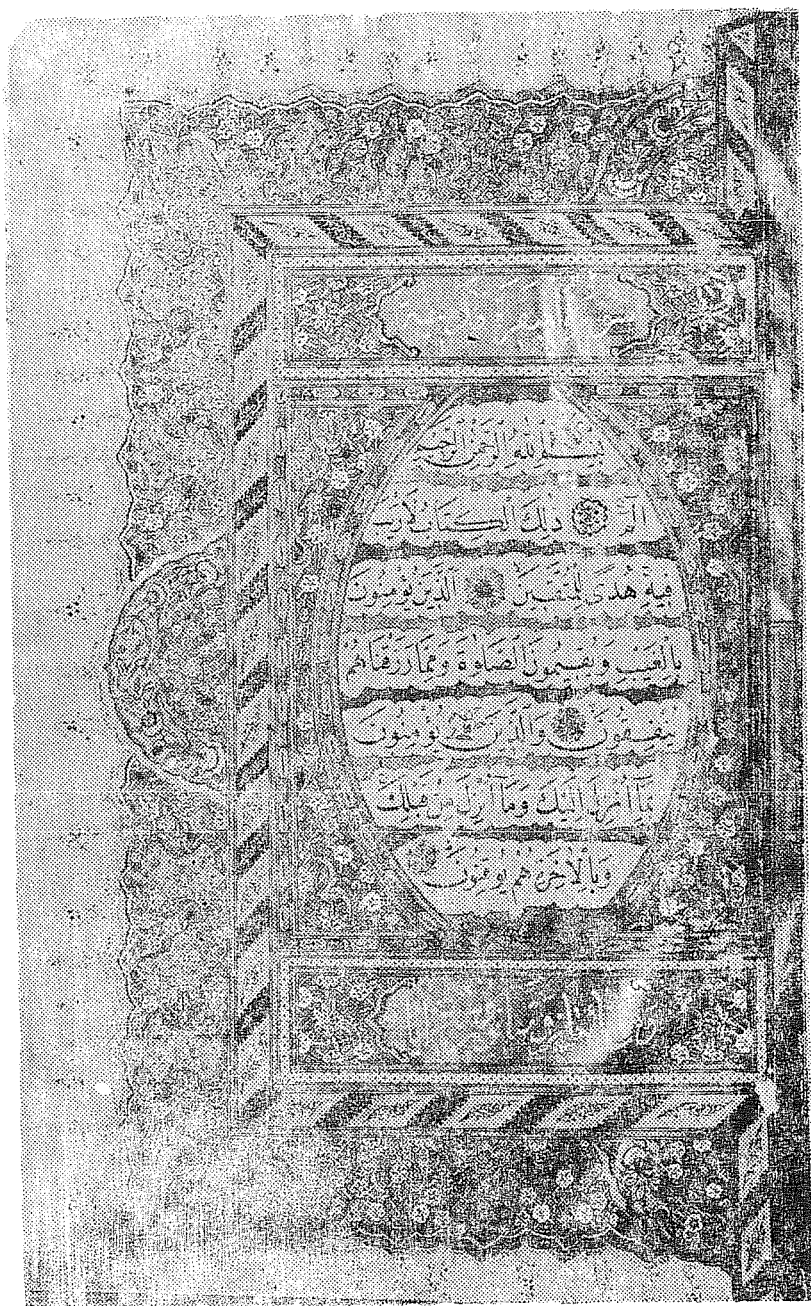 بِسْمِ اللهِ الرَّحْمٰنِ الرَّحِيمِ
الٓمٓ ذٰلِكَ الْكِتَابُ لَا رَيْبَ
فِيهِ هُدًى لِلْمُتَّقِينَ الَّذِينَ يُؤْمِنُونَ
بِالْغَيْبِ وَيُقِيمُونَ الصَّلٰوةَ وَمِمَّا رَزَقْنَاهُمْ
يُنْفِقُونَ وَالَّذِينَ يُؤْمِنُونَ
بِمَٓا اُنْزِلَ اِلَيْكَ وَمَٓا اُنْزِلَ مِنْ قَبْلِكَ
وَبِالْاٰخِرَةِ هُمْ يُوقِنُونَ